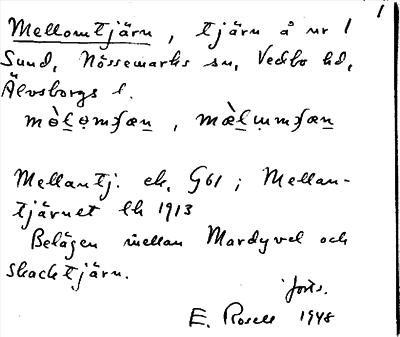 1
Mellomtjärn, tjärn å nr 1
Sund, Nössemarks sn, Vedbo hd,
Älvsborgs l.
Mellantj. ek. G61; Mellan-
tjärnet lk 1913
Belägen mellan Mardyvel och
skacktjärn.
forts.
E. Rosell 1948